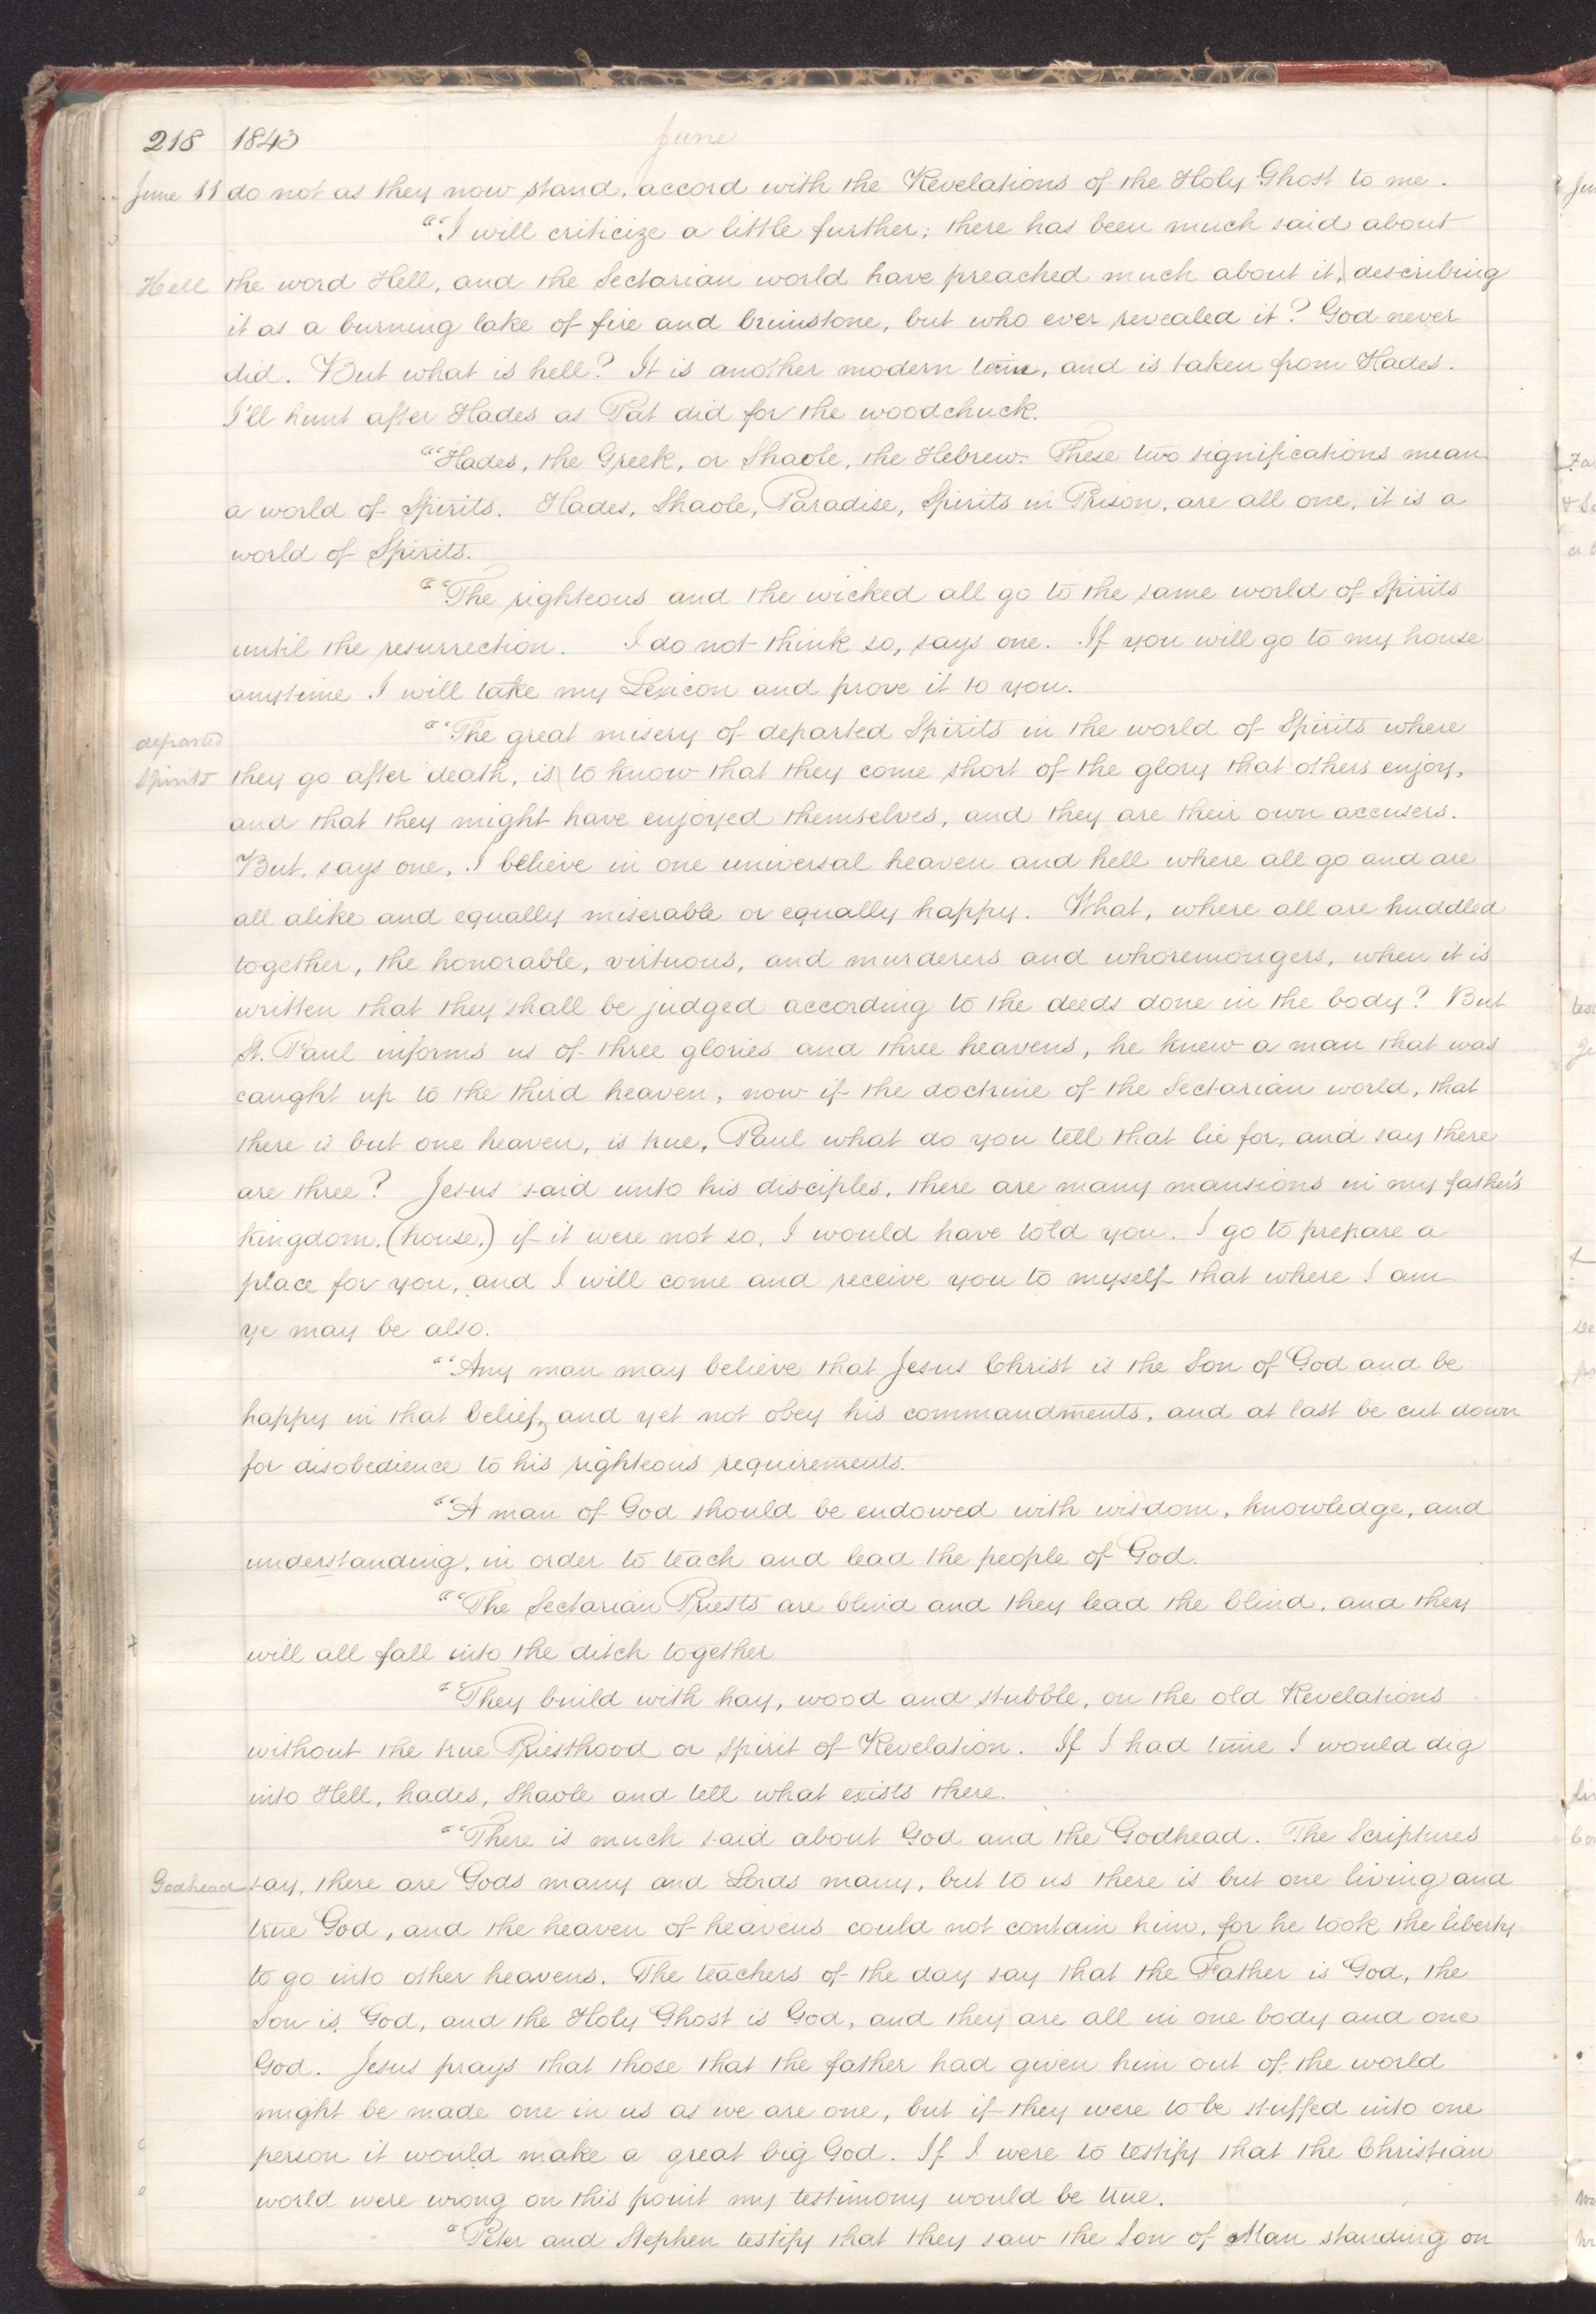 218 1843 June
June 11 do not as they now stand, accord with the Revelations of the Holy Ghost to me.
"“I will criticize a little further; there has been much said about
Hell the word Hell, and the Sectarian world have preached much about it, describing
it as a burning lake of fire and brimstone, but who ever revealed it? God never
did. But what is hell? It is another modern term, and is taken from Hades.
I'll hunt after Hades as Pat did for the woodchuck.
"“Hades, the Greek, or Shaole, the Hebrew. These two significations mean
a world of Spirits. Hades, Shaole, Paradise, Spirits in Prison, are all one, it is a
world of Spirits.
"“The righteous and the wicked all go to the same world of Spirits
until the resurrection. I do not think so, says one. If you will go to my house
anytime I will take my Lexicon and prove it to you.
"“The great misery of departed Spirits in the world of Spirits where
departed
Spirits they go after death, is to know that they come short of the glory that others enjoy,
and that they might have enjoyed themselves, and they are their own accusers.
But, says one, I believe in one universal heaven and hell where all go and are
all alike and equally miserable or equally happy. What, where all are huddled
together, the honorable, virtuous, and murderers and whoremongers, when it is
written that they shall be judged according to the deeds done in the body? But
St. Paul informs us of three glories and three heavens, he knew a man that was
caught up to the third heaven, now if the doctrine of the Sectarian world, that
there is but one heaven, is true, Paul what do you tell that lie for, and say there
are three? Jesus said unto his disciples, there are many mansions in my father's
kingdom, (house,) if it were not so, I would have told you. I go to prepare a
place for you, and I will come and receive you to myself that where I am
ye may be also.
"“Any man may believe that Jesus Christ is the Son of God and be
happy in that belief, and yet not obey his commandments, and at last be cut down
for disobedience to his righteous requirements.
"“A man of God should be endowed with wisdom, knowledge, and
understanding, in order to teach and lead the people of God.
"“The Sectarian Priests are blind and they lead the blind, and they
will all fall into the ditch together
"“They build with hay, wood and stubble, on the old Revelations
without the true Priesthood or spirit of Revelation. If I had time I would dig
into Hell, hades, Shaole and tell what exists there.
"“There is much said about God and the Godhead. The Scriptures
Godhead say, there are Gods many and Lords many, but to us there is but one living and
true God, and the heaven of heavens could not contain him, for he took the liberty
to go into other heavens. The teachers of the day say that the Father is God, the
Son is God, and the Holy Ghost is God, and they are all in one body and one
God. Jesus prays that those that the father had given him out of the world
might be made one in us as we are one, but if they were to be stuffed into one
person it would make a great big God. If I were to testify that the Christian
world were wrong on this point my testimony would be true.
"Peter and Stephen testify that they saw the Son of Man standing on